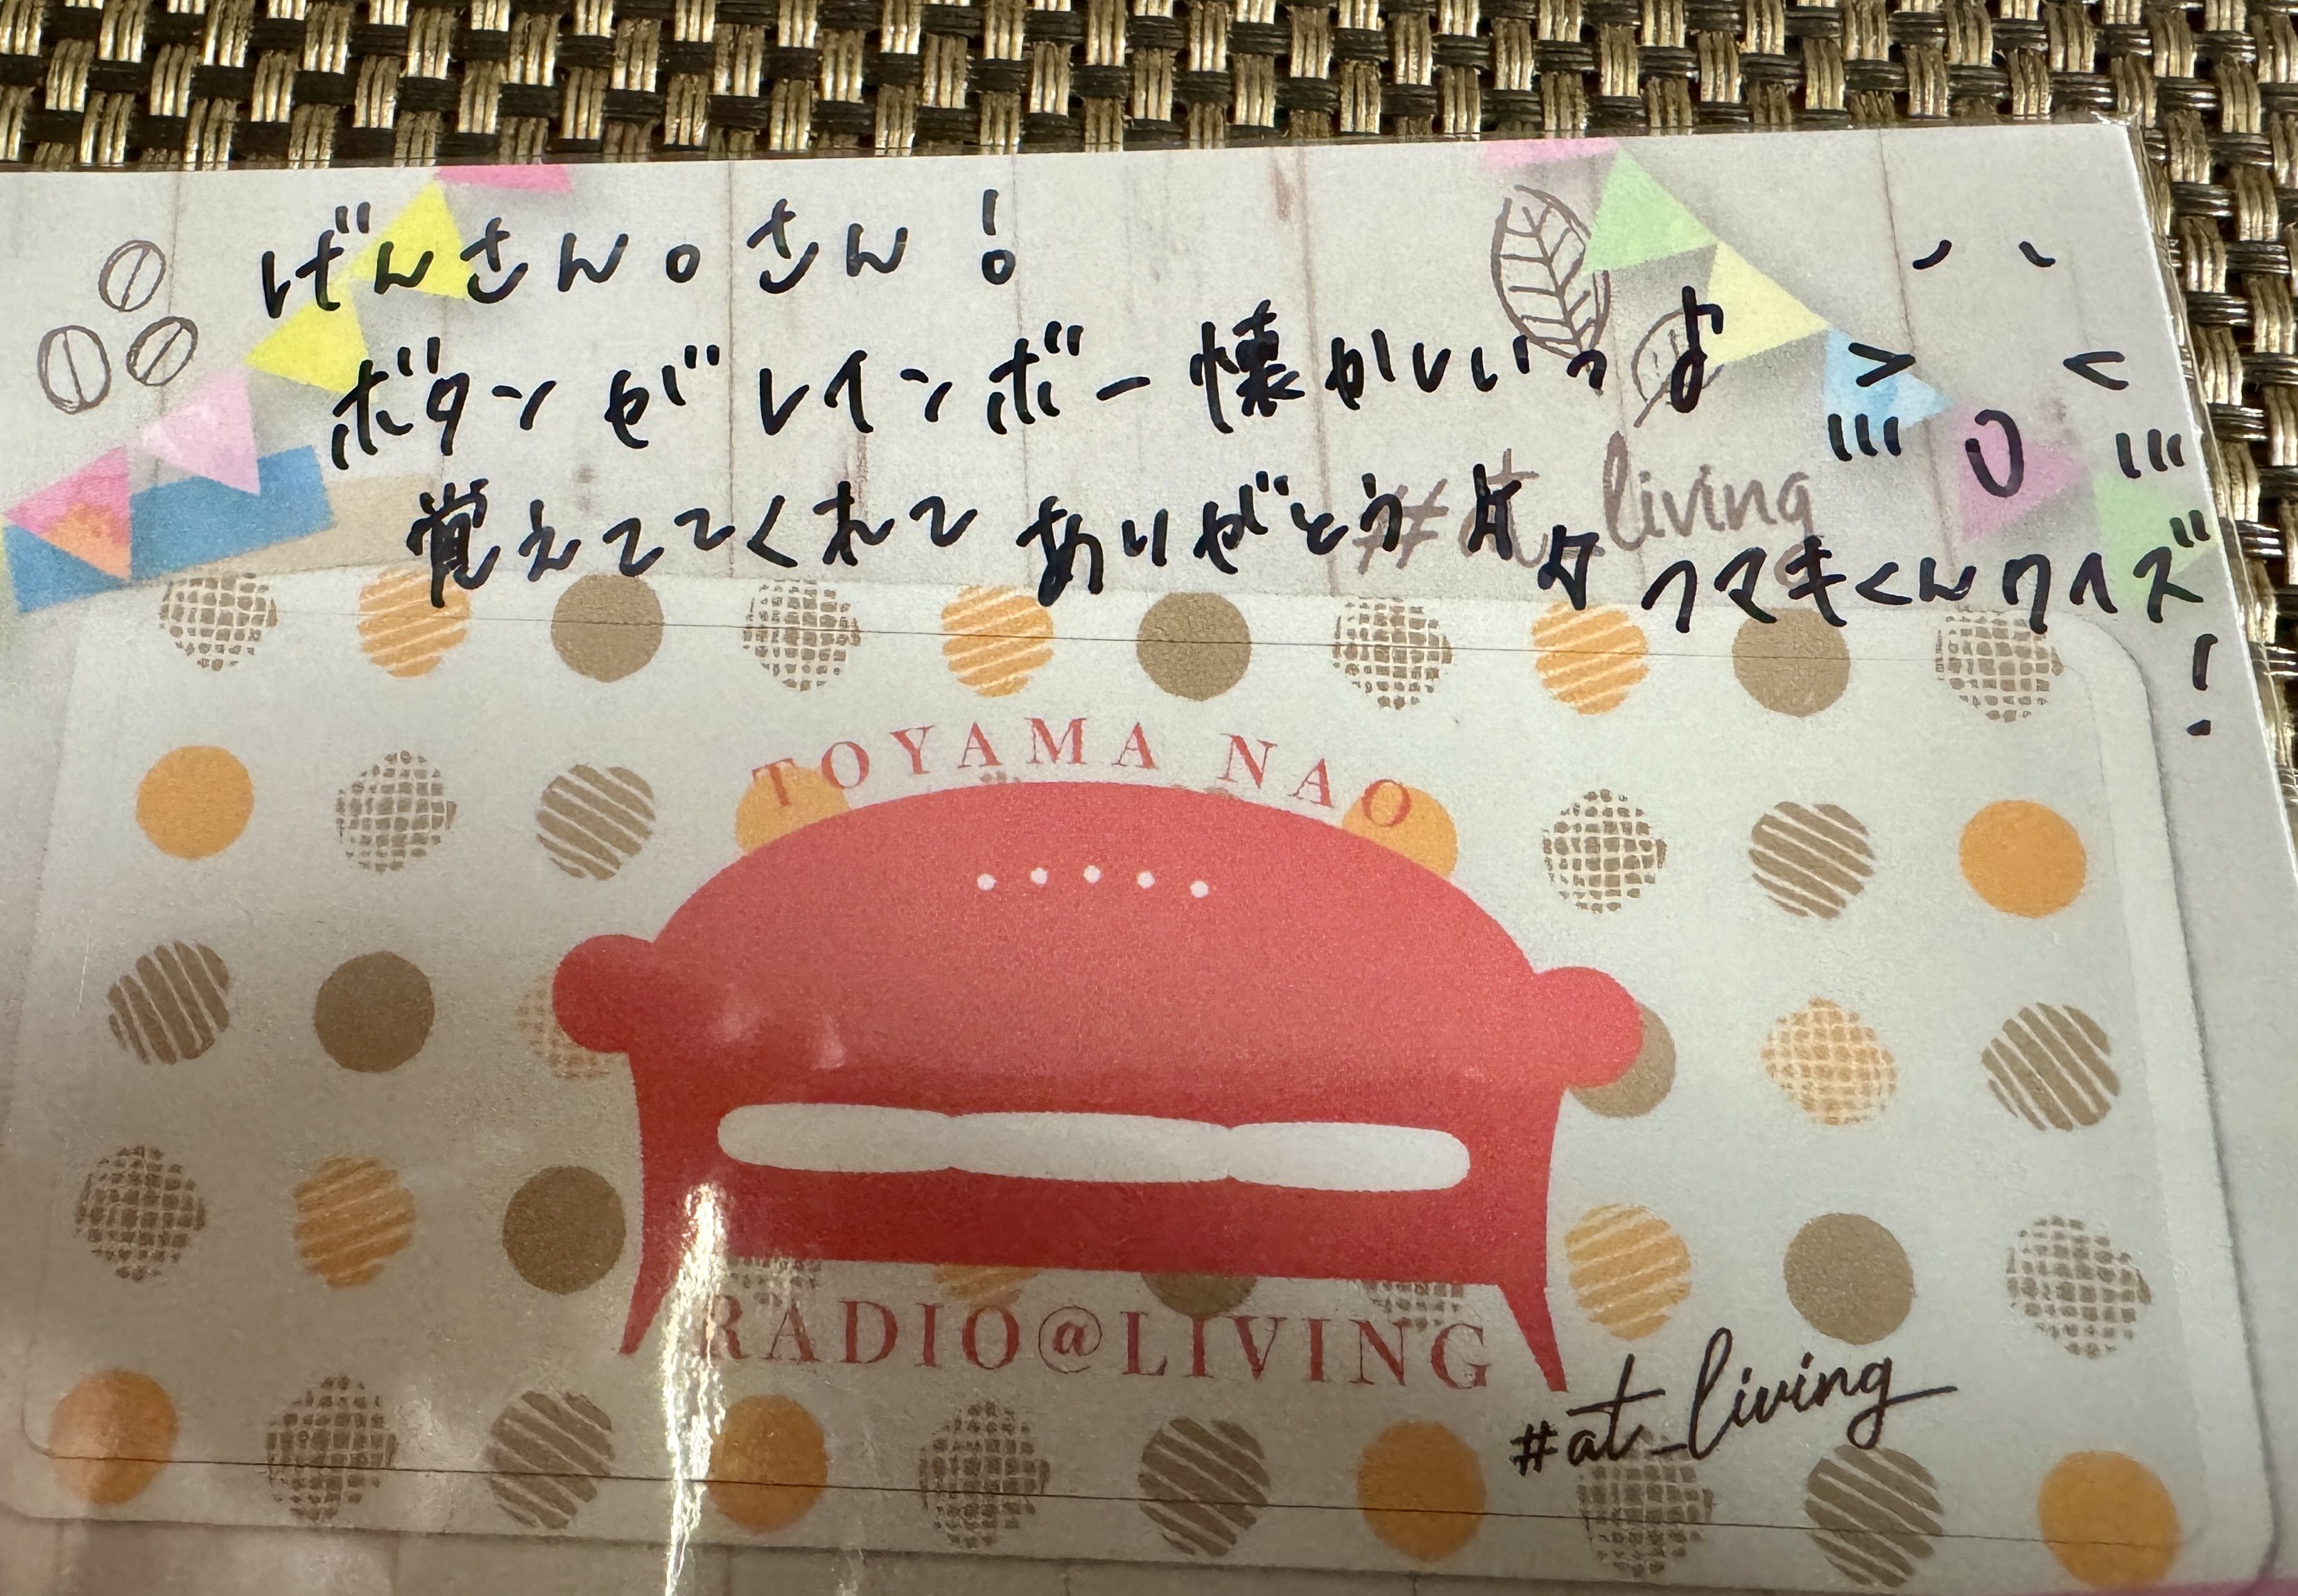 げんさん。さん!
ボタンがレインボー懐かしいっ♪
覚えててくれてありがとう
フマキくんクイズ!
#at_living
TOYAMA NAO
RADIO@LIVING
#at_living